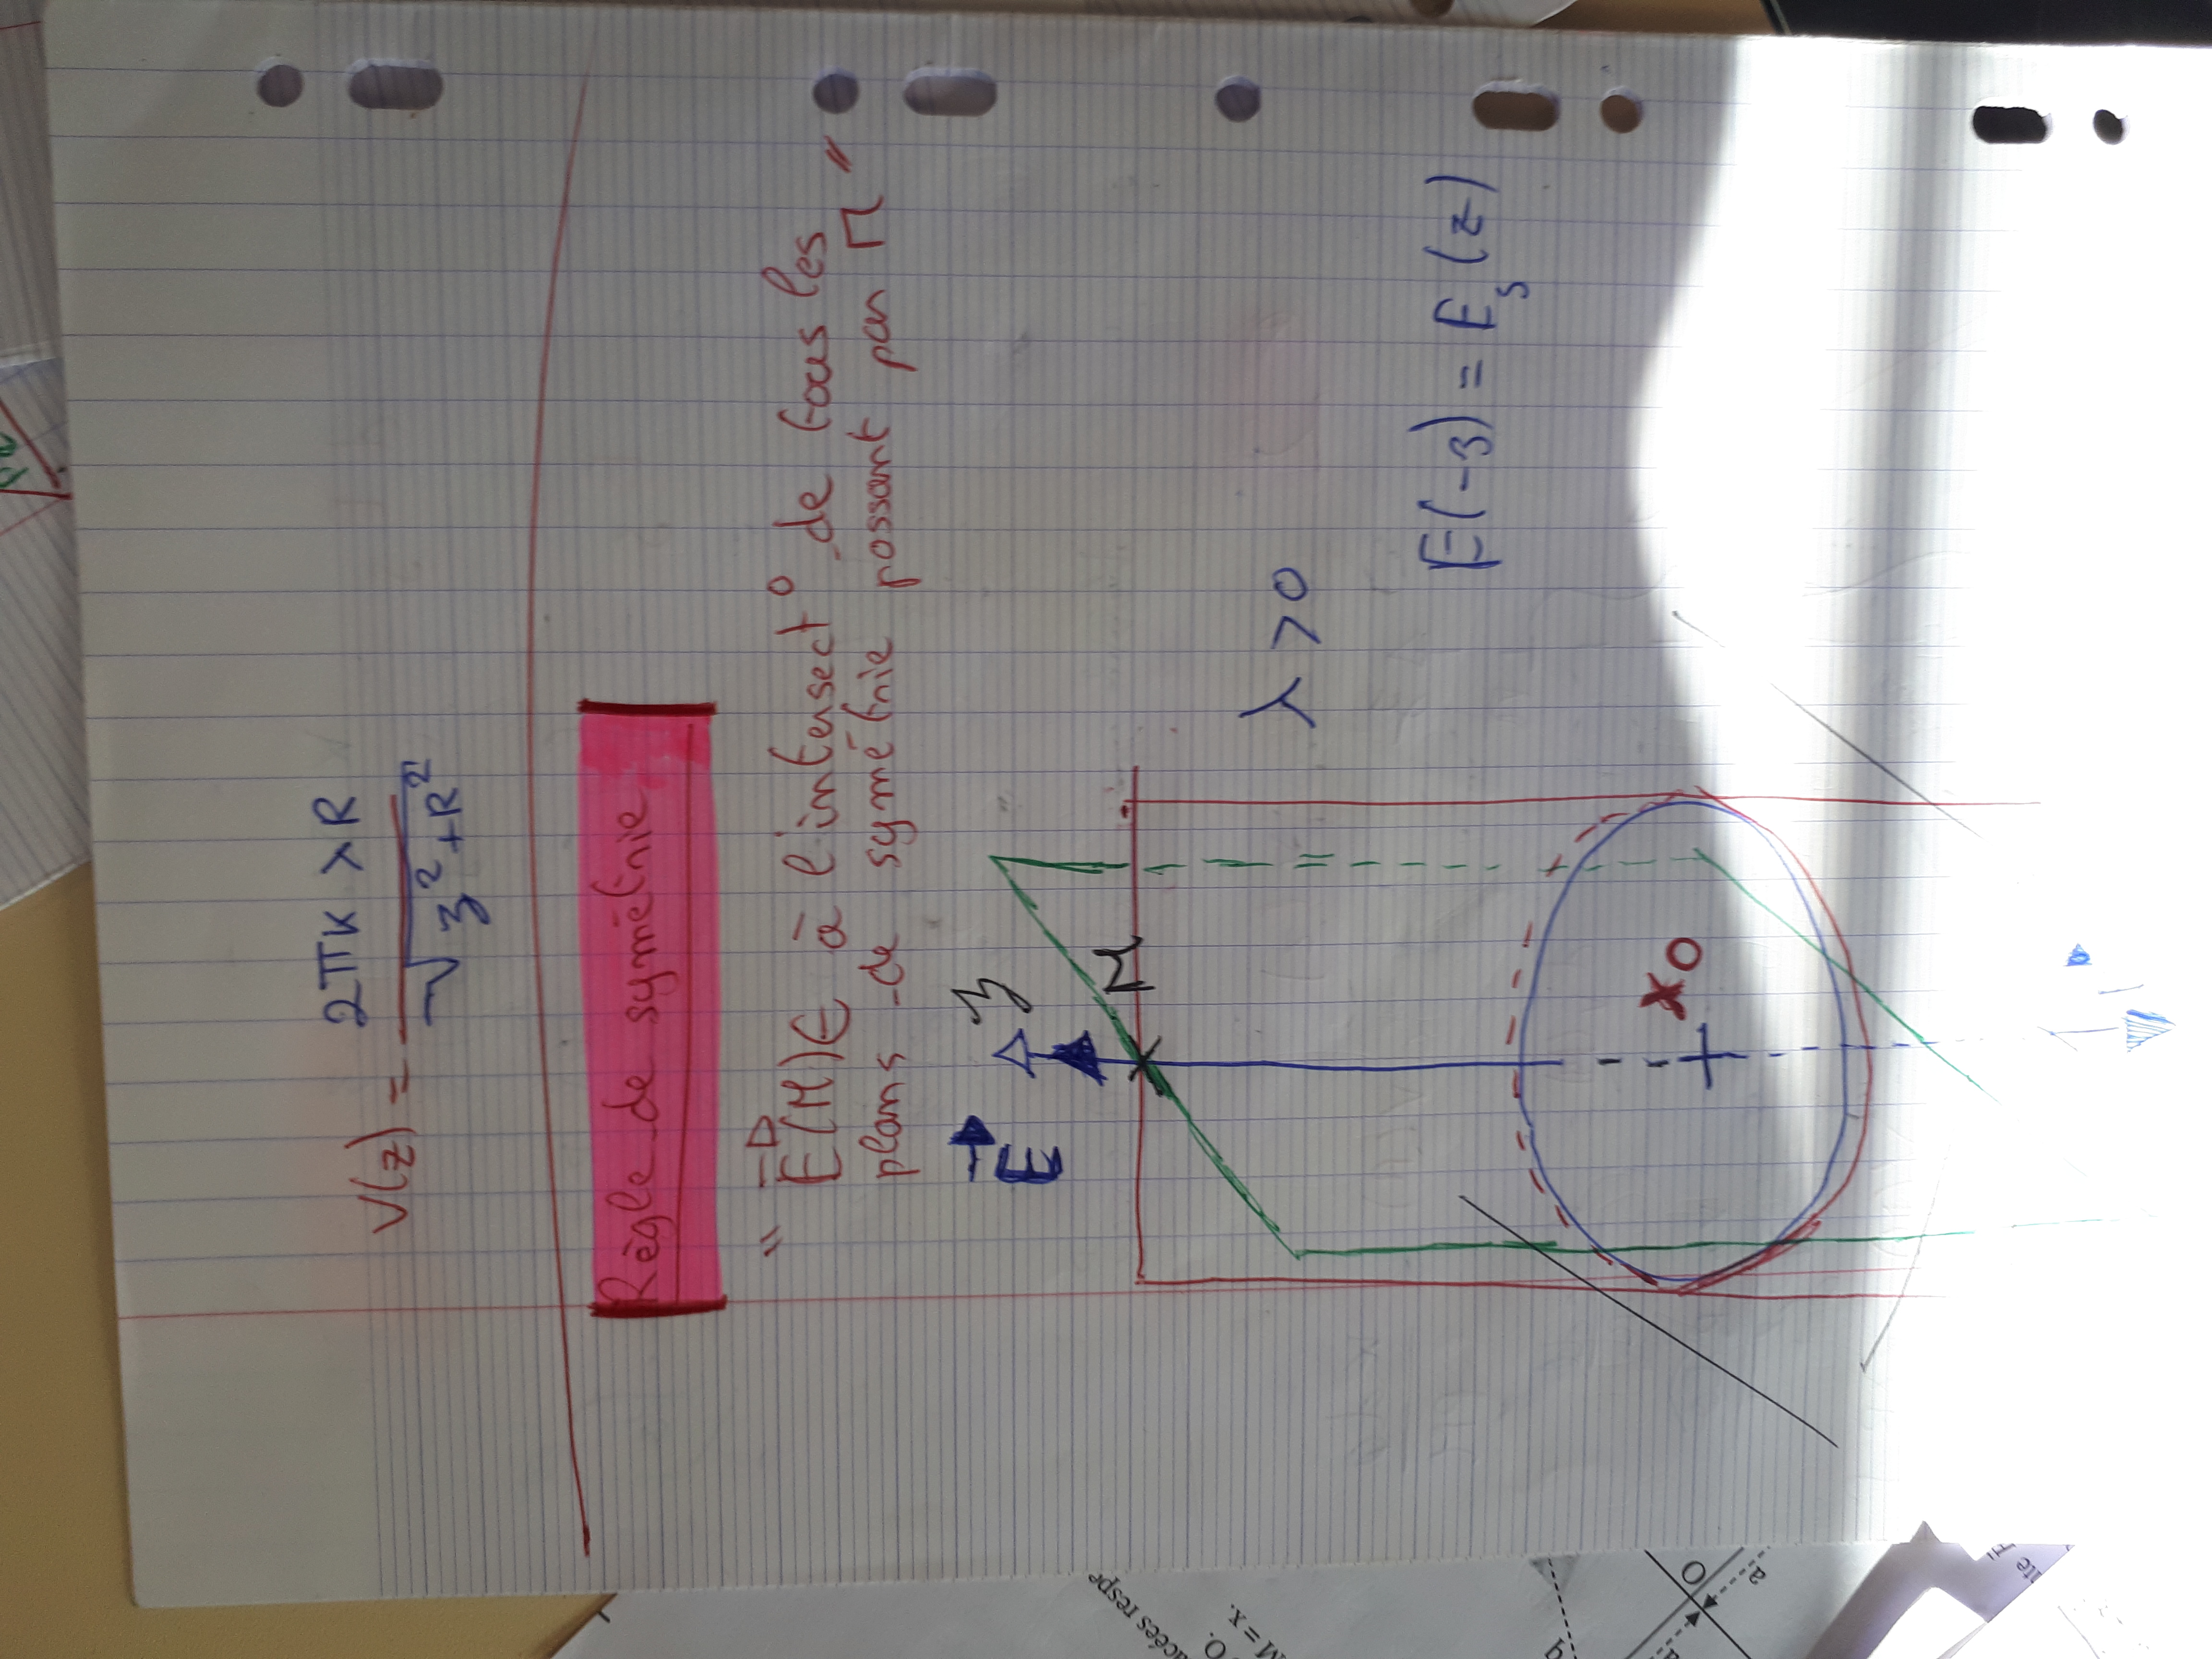 V(z) = 2πKλR / √(z²+R²)
Règle de symétrie
" E(M)∈ à l'intersect° de tous les
plans de symétrie passant par M "
E
z
M
λ > 0
E(-z) = E_s(z)
O
acées respe
O.
M = x.
q
a
O
a
ite F